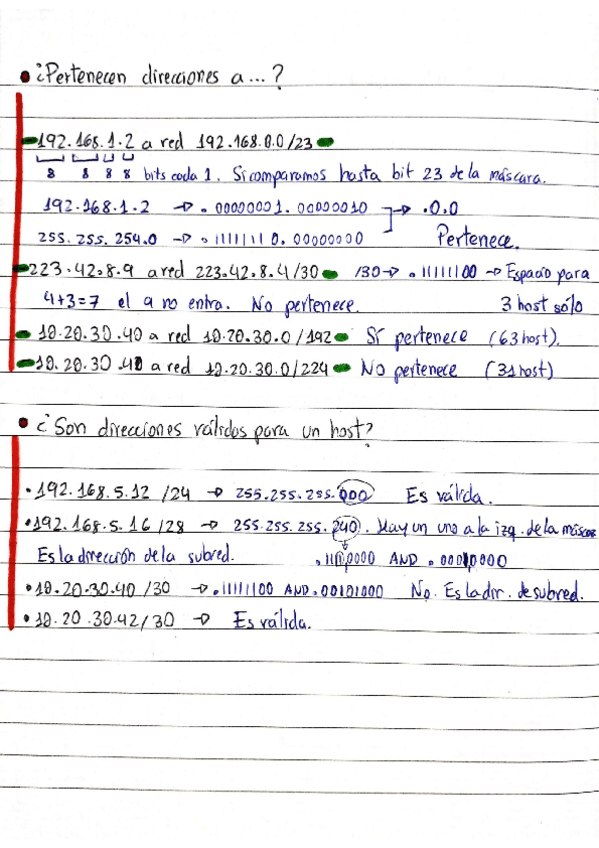 • ¿Pertenecen direcciones a...?
192.168.1.2 a red 192.168.0.0/23
8 8 8 8 bits cada 1. Si comparamos hasta bit 23 de la máscara.
192.168.1.2 → . 00000001. 00000010 → .0.0
255.255.254.0 → . 11111110. 00000000 Pertenece.
223.42.8.9 a red 223.42.8.4/30 /30 → . 11111100 → Espacio para
4+3=7 el 9 no entra. No pertenece. 3 host sólo
10.20.30.40 a red 10.20.30.0/192 Sí pertenece (63 host).
10.20.30.40 a red 10.20.30.0/224 No pertenece (31 host)
• ¿Son direcciones válidas para un host?
• 192.168.5.12 /24 → 255.255.255.000 Es válida.
• 192.168.5.16 /28 → 255.255.255.240. Hay un uno a la izq. de la máscara
Es la dirección de la subred. .11110000 AND .00010000
• 10.20.30.40 /30 → .11111100 AND .00101000 No. Es la dir. de subred.
• 10.20.30.42/30 → Es válida.